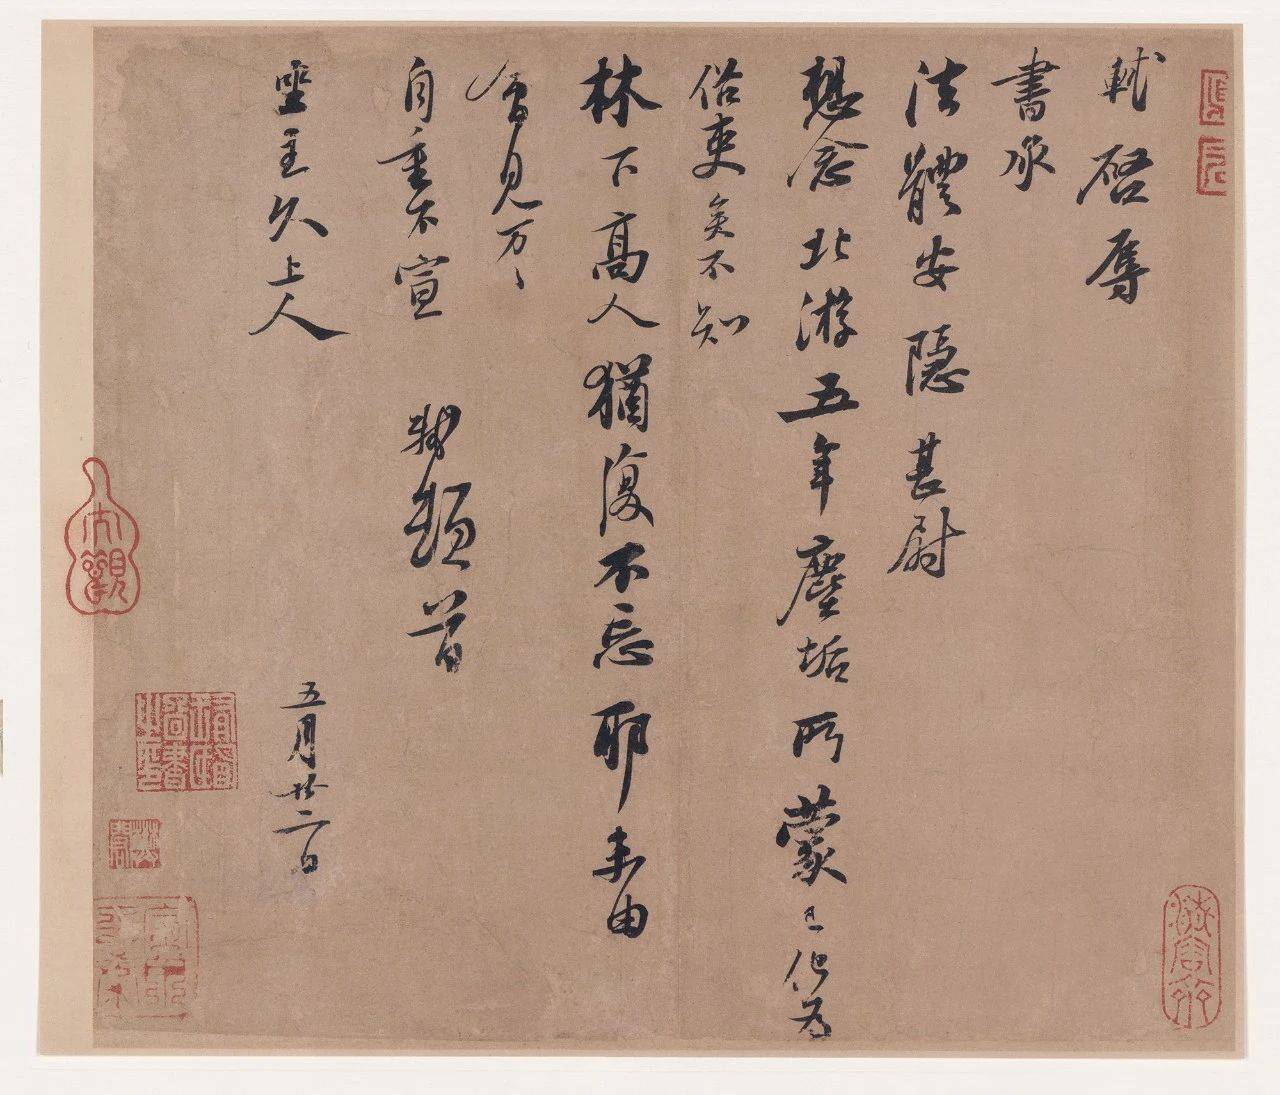 軾啓辱
書承
法體安隱甚慰
想念北游五年塵垢所蒙已化為
俗吏矣不知
林下高人猶復不忘耶未由
會見万〻
自重不宣　軾頓首
坐主久上人　五月廿二日
大觀